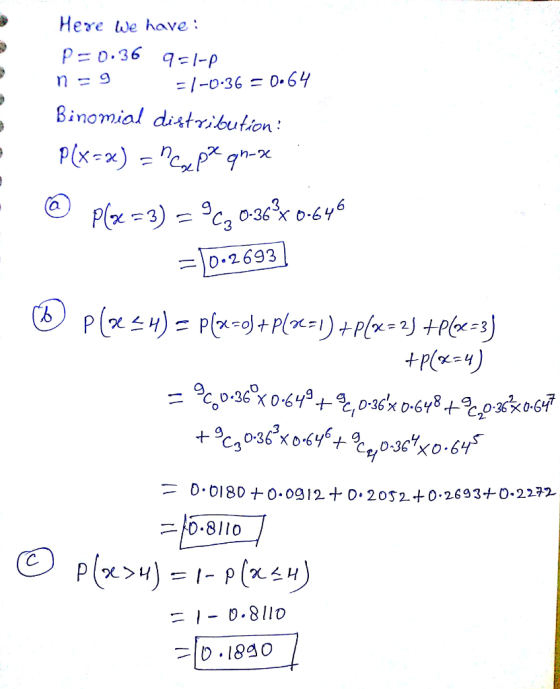 Here we have:
P = 0.36 q = 1-p
n = 9 = 1-0.36 = 0.64
Binomial distribution:
P(X=x) = ⁿCₓ pˣ qⁿ⁻ˣ
(a) P(x=3) = ⁹C₃ 0.36³ x 0.64⁶
= 0.2693
(b) P(x≤4) = P(x=0)+P(x=1)+P(x=2)+P(x=3)
+P(x=4)
= ⁹C₀ 0.36⁰ x 0.64⁹ + ⁹C₁ 0.36¹ x 0.64⁸ + ⁹C₂ 0.36² x 0.64⁷
+ ⁹C₃ 0.36³ x 0.64⁶ + ⁹C₄ 0.36⁴ x 0.64⁵
= 0.0180 + 0.0912 + 0.2052 + 0.2693 + 0.2272
= 0.8110
(c) P(x>4) = 1- P(x≤4)
= 1 - 0.8110
= 0.1890